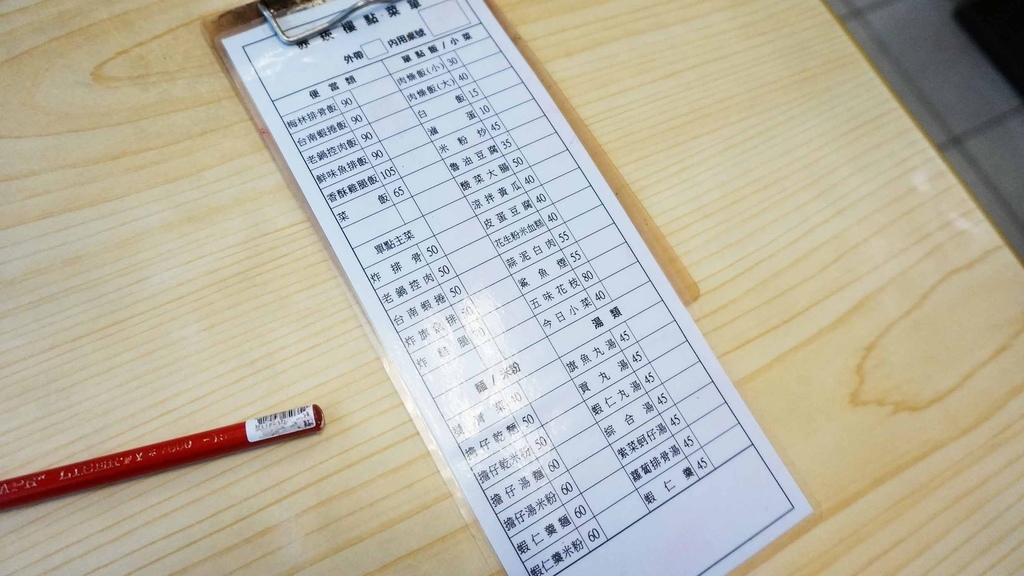 樓點菜單
外帶 內用桌號
便當類
梅林排骨飯 90
台南蝦捲飯 90
老鍋控肉飯 90
鮮味魚排飯 90
香酥雞腿飯 105
菜飯 65
單點主菜
炸排骨 50
老鍋控肉 50
台南蝦捲 50
炸旗魚排
炸雞腿
麵/米粉
燙青菜 40
擔仔乾麵 50
擔仔乾米粉 50
擔仔湯麵 60
擔仔湯米粉 60
蝦仁羹麵 60
蝦仁羹米粉 60
單點飯/小菜
肉燥飯(小) 30
肉燥飯(大) 40
白飯 15
滷蛋 10
米粉炒 45
魯油豆腐 35
酸菜大腸 50
涼拌黃瓜 40
皮蛋豆腐 40
花生粉米血糕 40
蒜泥白肉 55
鯊魚煙 55
五味花枝 80
今日小菜 40
湯類
旗魚丸湯 45
貢丸湯 45
蝦仁丸湯 45
綜合湯 45
紫菜蚵仔湯 45
蘿蔔排骨湯 45
蝦仁羹 45